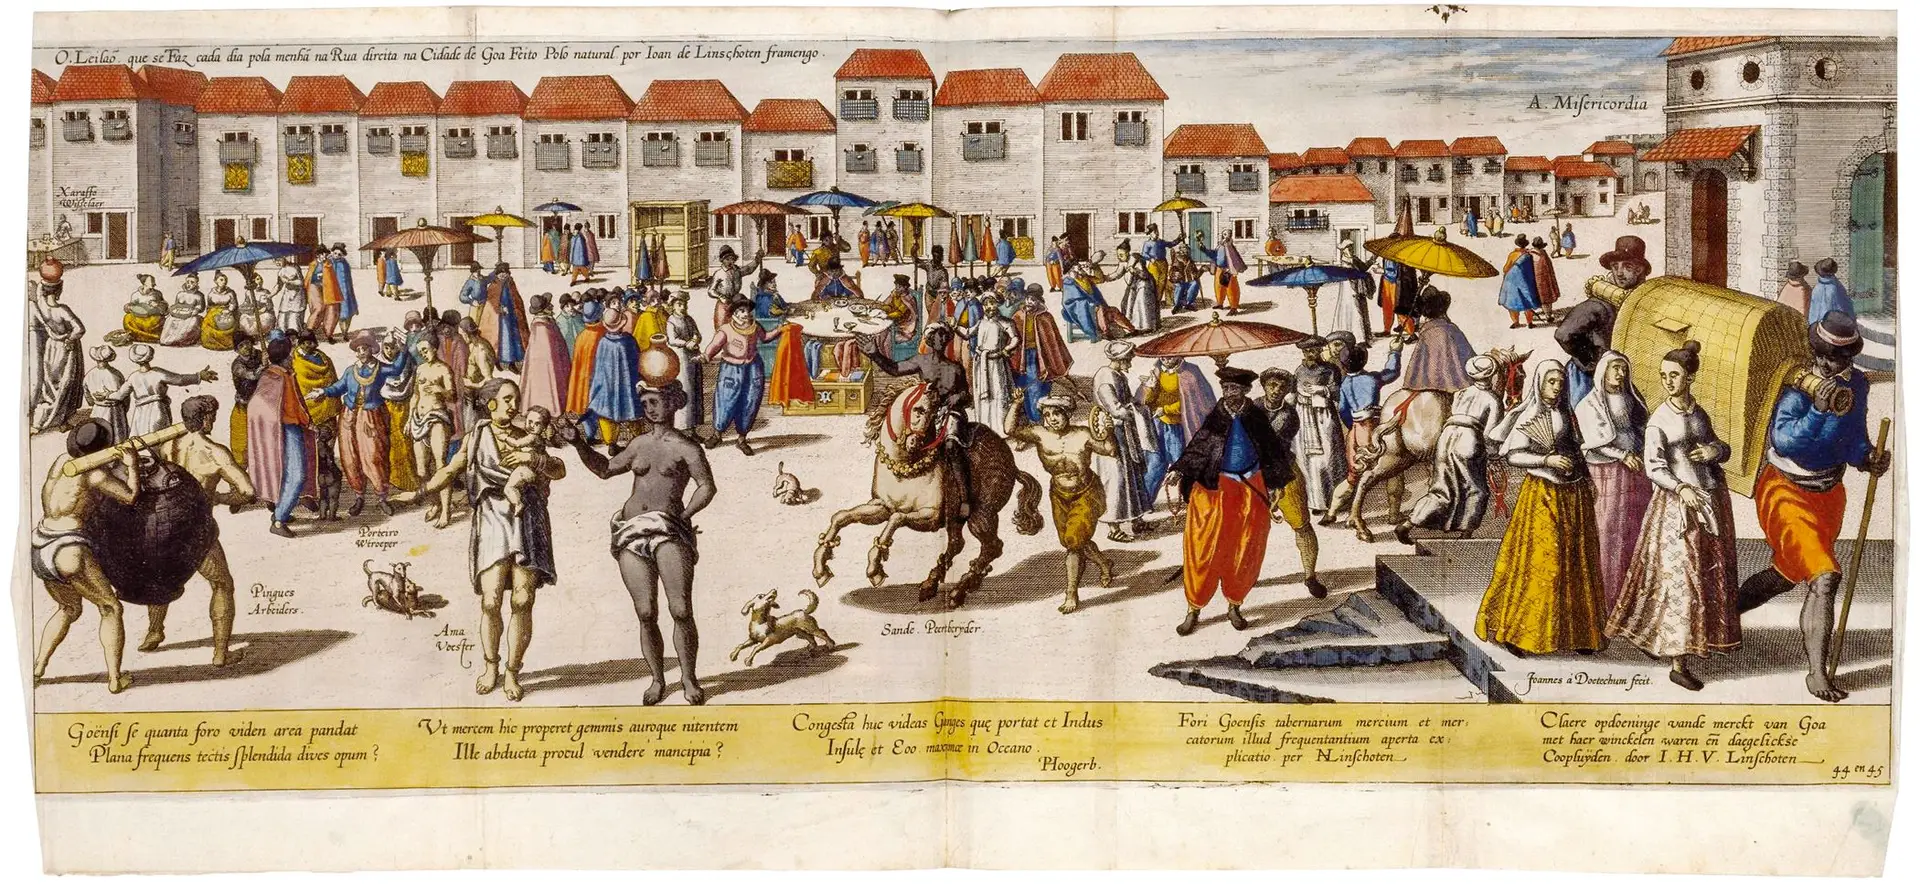 O. Leilaõ. que se Faz cada dia pola menhã na Rua direita na Cidade de Goa Feito Polo natural por Ioan de Linschoten framengo.
A. Misericordia
Xaraffo
Wisselaer
Porteiro
Wtroeper
Pingues
Arbeiders.
Ama
Voester
Sande. Peenberyder.
Joannes à Doetechum fecit.
Goënsi se quanta foro viden area pandat
Plana frequens tectis splendida dives opum?
Vt mercem hic properet gemmis auroque nitentem
Ille abducta procul vendere mancipia?
Congesta huc videas Ganges quę portat et Indus
Insulę et Eoo maxime in Oceano.
Hoogerb.
Fori Goensis tabernarum mercium et mer:
catorum illud frequentantium aperta ex:
plicatio per Linschoten
Claere opdoeninge vande merckt van Goa
met haer winckelen waren en̄ daegelickse
Coopluÿden door I. H. V. Linschoten
44 en 45